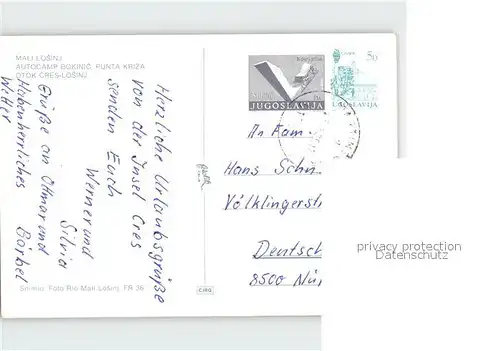 MALI LOŠINJ
AUTOCAMP BOKINIĆ, PUNTA KRIŽA
OTOK CRES-LOŠINJ
Herzliche Urlaubsgrüße
von der Insel Cres
senden Euch
Werner und
Silvia
Grüße an Ottmar und Bärbel
Haben herrliches
Wetter
Snimio: Foto Rio Mali Lošinj, FR 36
JUGOSLAVIJA
50
JUGOSLAVIJA
An Fam.
Hans Schn
Völklingerstr
Deutsch
8500 Nü
privacy protection
Datenschutz